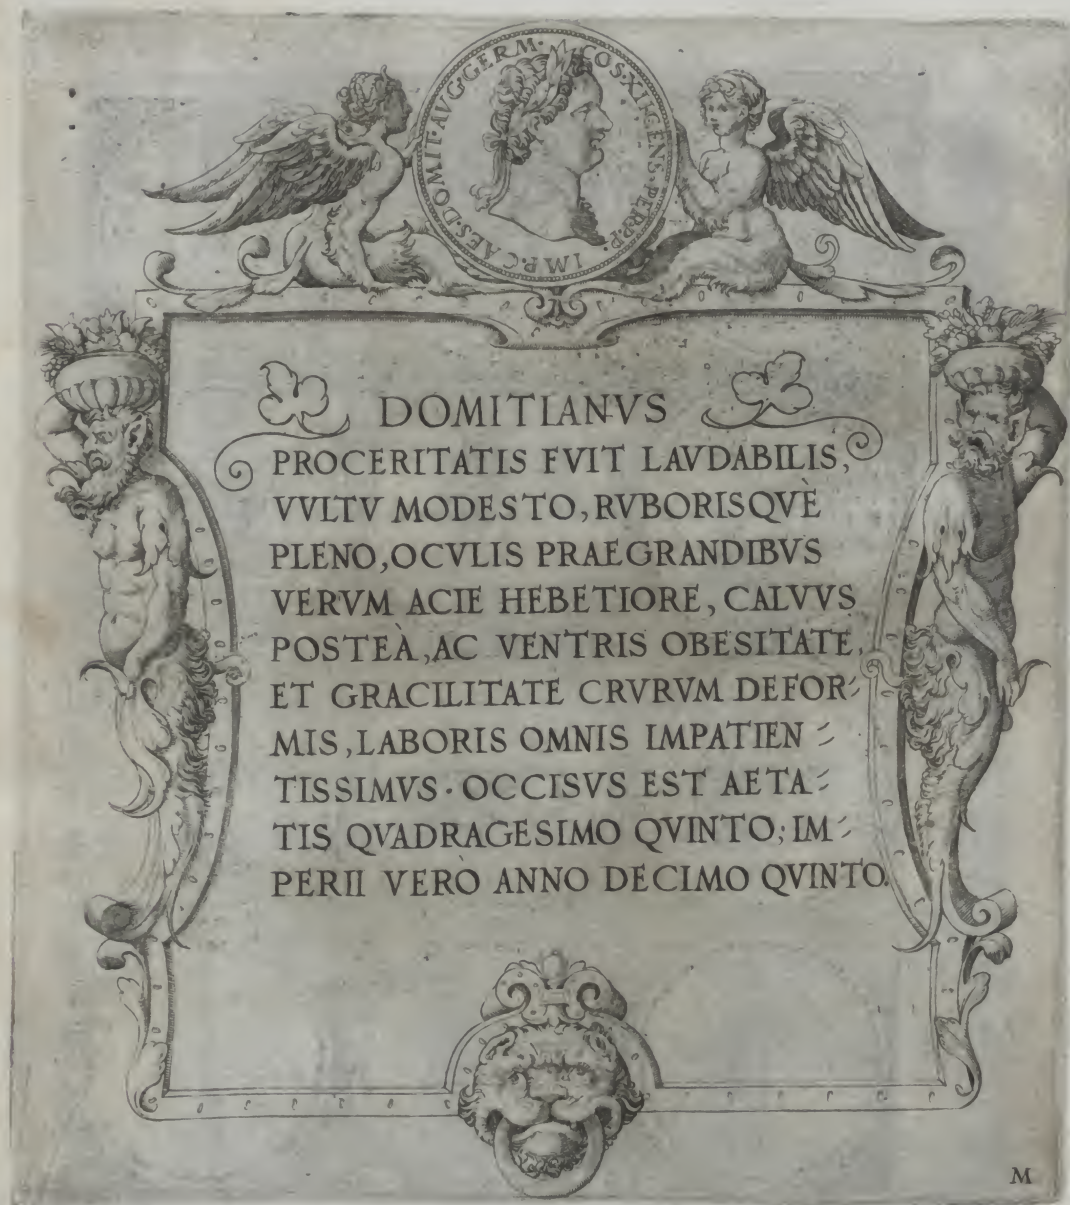 IMP·CAES·DOMIT·AUG·GERM·COS·XII·CENS·PER·P·P·
DOMITIANVS
PROCERITATIS FVIT LAVDABILIS,
VVLTV MODESTO, RVBORISQVÈ
PLENO, OCVLIS PRAEGRANDIBVS
VERVM ACIE HEBETIORE, CALVVS
POSTEÀ, AC VENTRIS OBESITATE,
ET GRACILITATE CRVRVM DEFOR-
MIS, LABORIS OMNIS IMPATIEN-
TISSIMVS · OCCISVS EST AETA-
TIS QVADRAGESIMO QVINTO; IM-
PERII VERÒ ANNO DECIMO QVINTO.
M